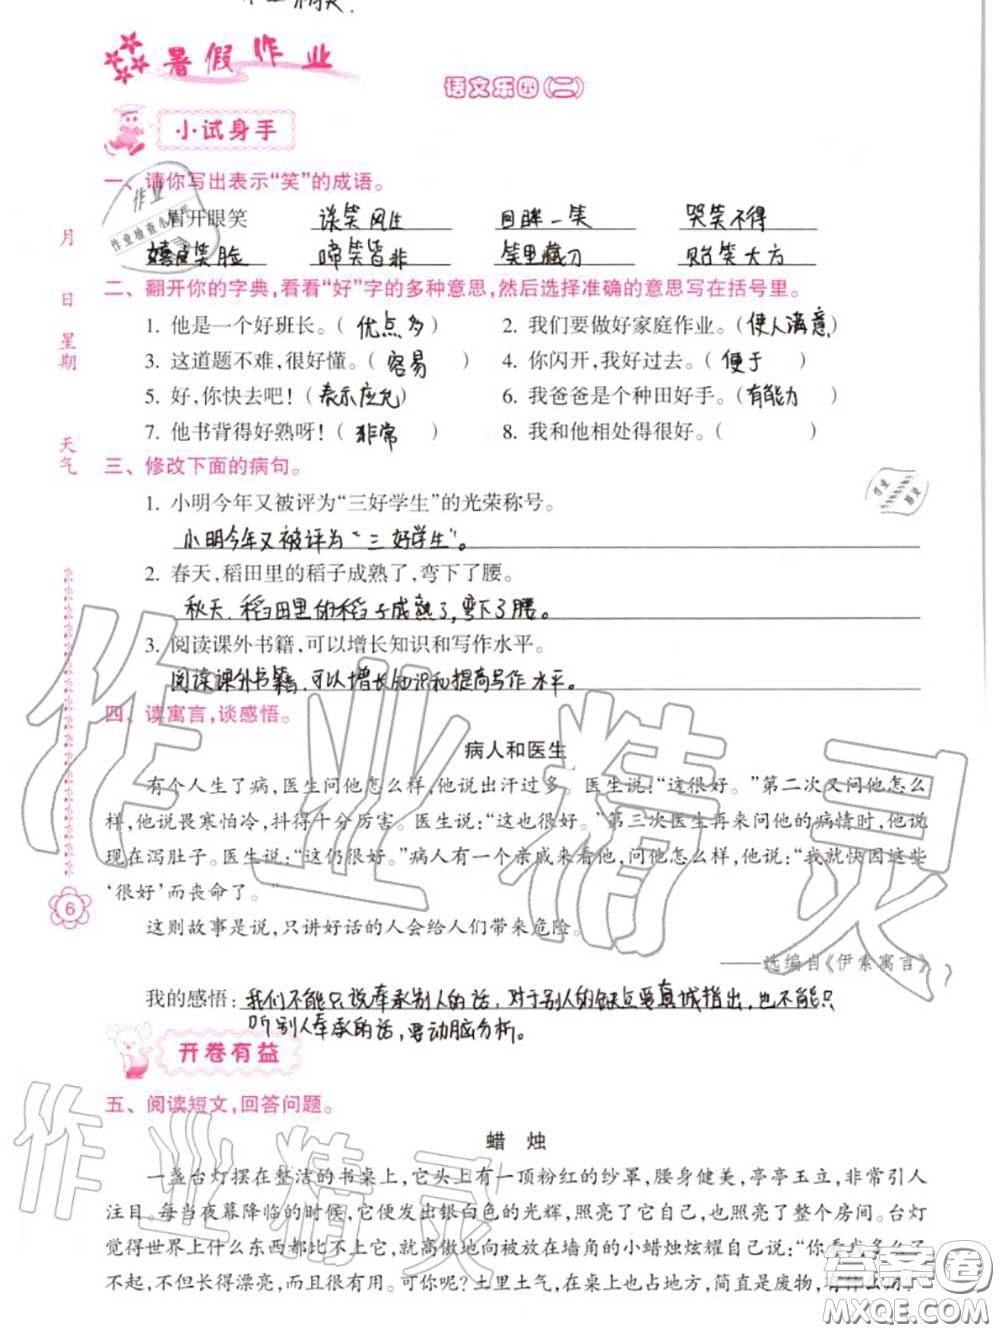 暑假作业
语文乐园(二)
小试身手
一、请你写出表示“笑”的成语。
眉开眼笑 谈笑风生 回眸一笑 哭笑不得
嬉皮笑脸 啼笑皆非 笑里藏刀 贻笑大方
二、翻开你的字典,看看“好”字的多种意思,然后选择准确的意思写在括号里。
1. 他是一个好班长。(优点多) 2. 我们要做好家庭作业。(使人满意)
3. 这道题不难,很好懂。(容易) 4. 你闪开,我好过去。(便于)
5. 好,你快去吧!(表示应允) 6. 我爸爸是个种田好手。(有能力)
7. 他书背得好熟呀!(非常) 8. 我和他相处得很好。( )
三、修改下面的病句。
1. 小明今年又被评为“三好学生”的光荣称号。
小明今年又被评为“三好学生”。
2. 春天,稻田里的稻子成熟了,弯下了腰。
秋天,稻田里的稻子成熟了,弯下了腰。
3. 阅读课外书籍,可以增长知识和写作水平。
阅读课外书籍,可以增长知识和提高写作水平。
四、读寓言,谈感悟。
病人和医生
有个人生了病,医生问他怎么样,他说出汗过多。医生说:“这很好。”第二次又问他怎么
样,他说畏寒怕冷,抖得十分厉害。医生说:“这也很好。”第三次医生再来问他的病情时,他说
现在泻肚子。医生说:“这仍很好。”病人有一个亲戚来看他,问他怎么样,他说:“我就快因这些
‘很好’而丧命了。”
这则故事是说,只讲好话的人会给人们带来危险。
——选编自《伊索寓言》
我的感悟:我们不能只说奉承别人的话,对于别人的缺点要真诚指出,也不能只
听别人奉承的话,要动脑分析。
开卷有益
五、阅读短文,回答问题。
蜡 烛
一盏台灯摆在整洁的书桌上,它头上有一顶粉红的纱罩,腰身健美,亭亭玉立,非常引人
注目。每当夜幕降临的时候,它便发出银白色的光辉,照亮了它自己,照亮了整个房间。台灯
觉得世界上什么东西都比不上它,就高傲地向被放在墙角的小蜡烛炫耀自己说:“你看我多么了
不起,不但长得漂亮,而且很有用。可你呢?土里土气,在桌上也占地方,简直是废物,
月
日
星期
天气
6
作业精灵
作业精灵
作业
作业检查小
答案圈
MXQE.COM